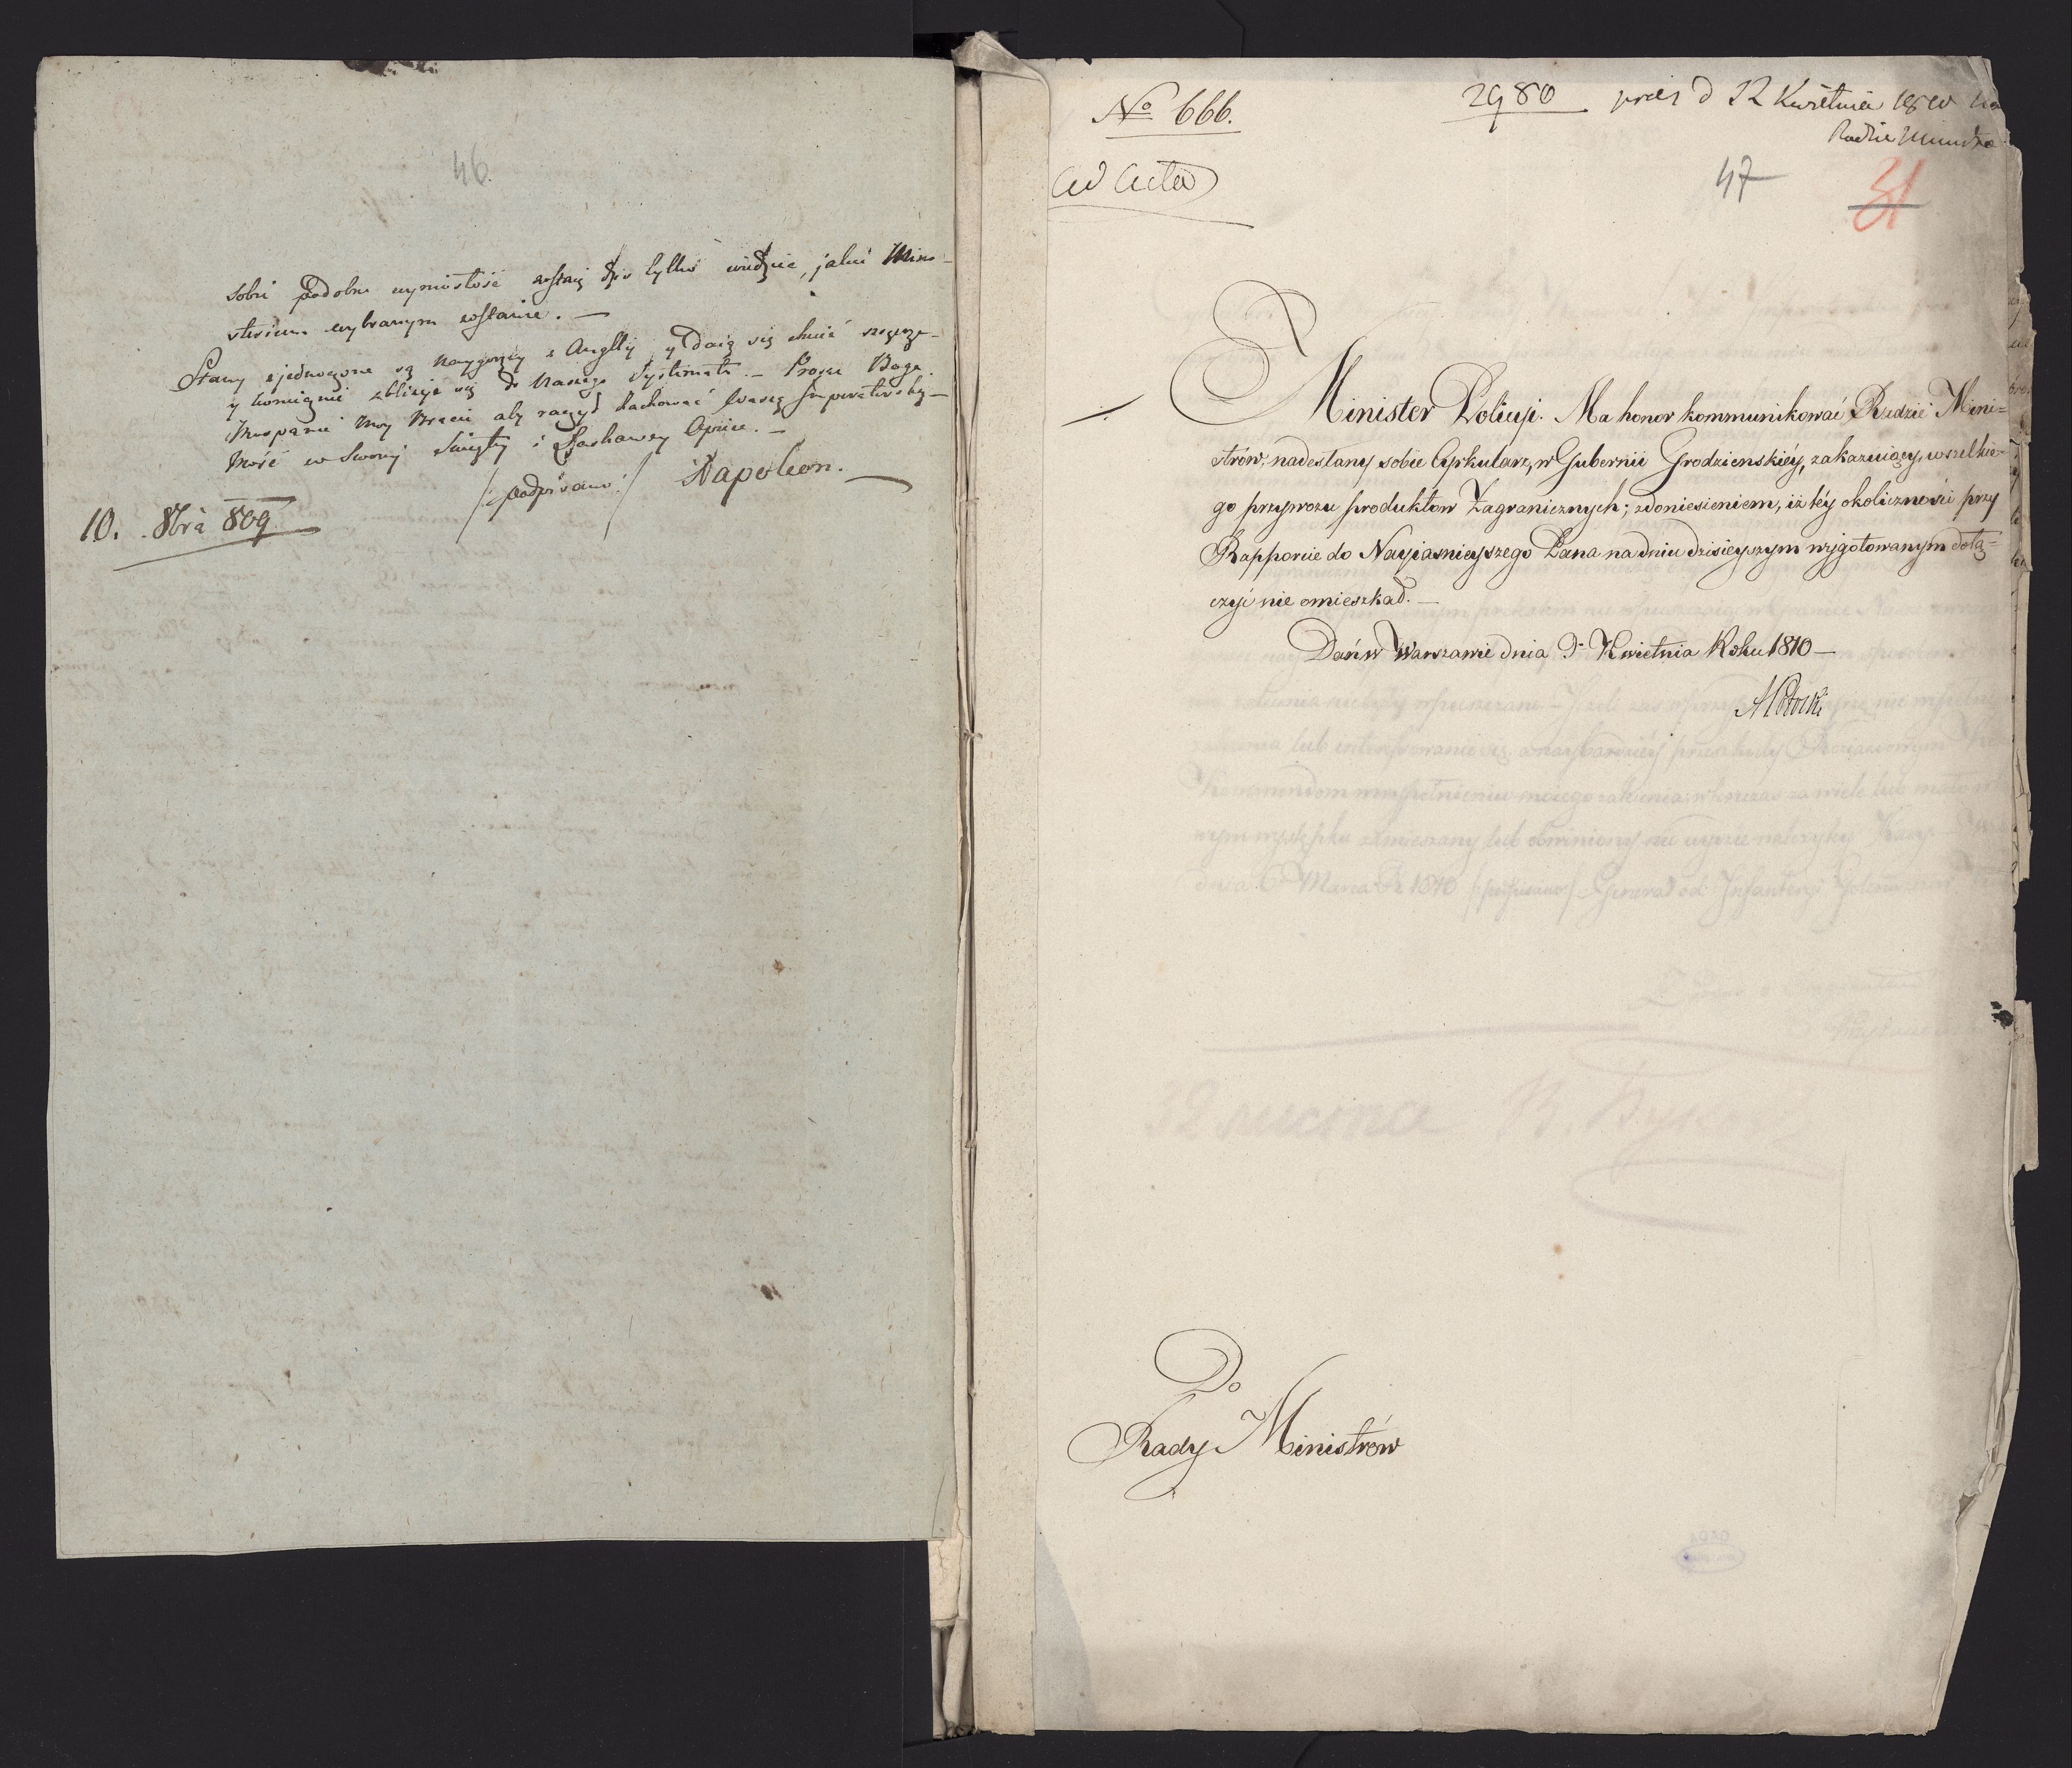 46.
sobie podobne wyniosłość zostaią tylko widzieć, jakie Mini-
sterium wybranym zostanie. —
Stany zjednoczone są naygorzey z Anglią y daią się chcieć szczerze
y koniecznie zbliżyć się do Naszego Systematu. — Proszę Boga
Mospanie Moy Bracie aby raczył zachować Waszą Imperatorską
Mość w Swoiey Swiętey i Łaskawey Opiece. —
/: podpisano :/ Napoleon. —
10. 8bra 809
No 666.
2980 prez d 12 Kwietnia 1810 na
Radzie Ministr
ad acta
47
31
Minister Policyi. Ma honor kommunikować Radzie Mini=
strów, nadesłany sobie Cyrkularz, w Gubernii Grodzienskiéy, zakazuiący, wszelkie=
go przywozu produktow Zagranicznych; z doniesieniem, iż téy okoliczności przy
Rapporcie do Nayiasnieyszego Pana na dniu dzisieyszym wygotowanym dołą=
czyć nie omieszkał. —
Dań w Warszawie dnia 9. Kwietnia Roku 1810 —
Potocki
Do
Rady Ministrów